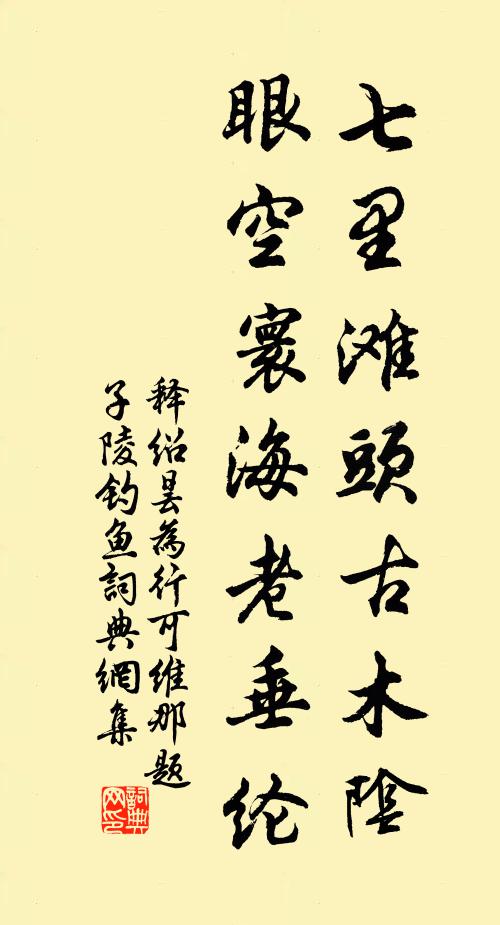 七里滩頭古木陰
眼空寰海老垂纶
释绍昙為行可維那题
子陵钓魚詞典網集
詞典网印